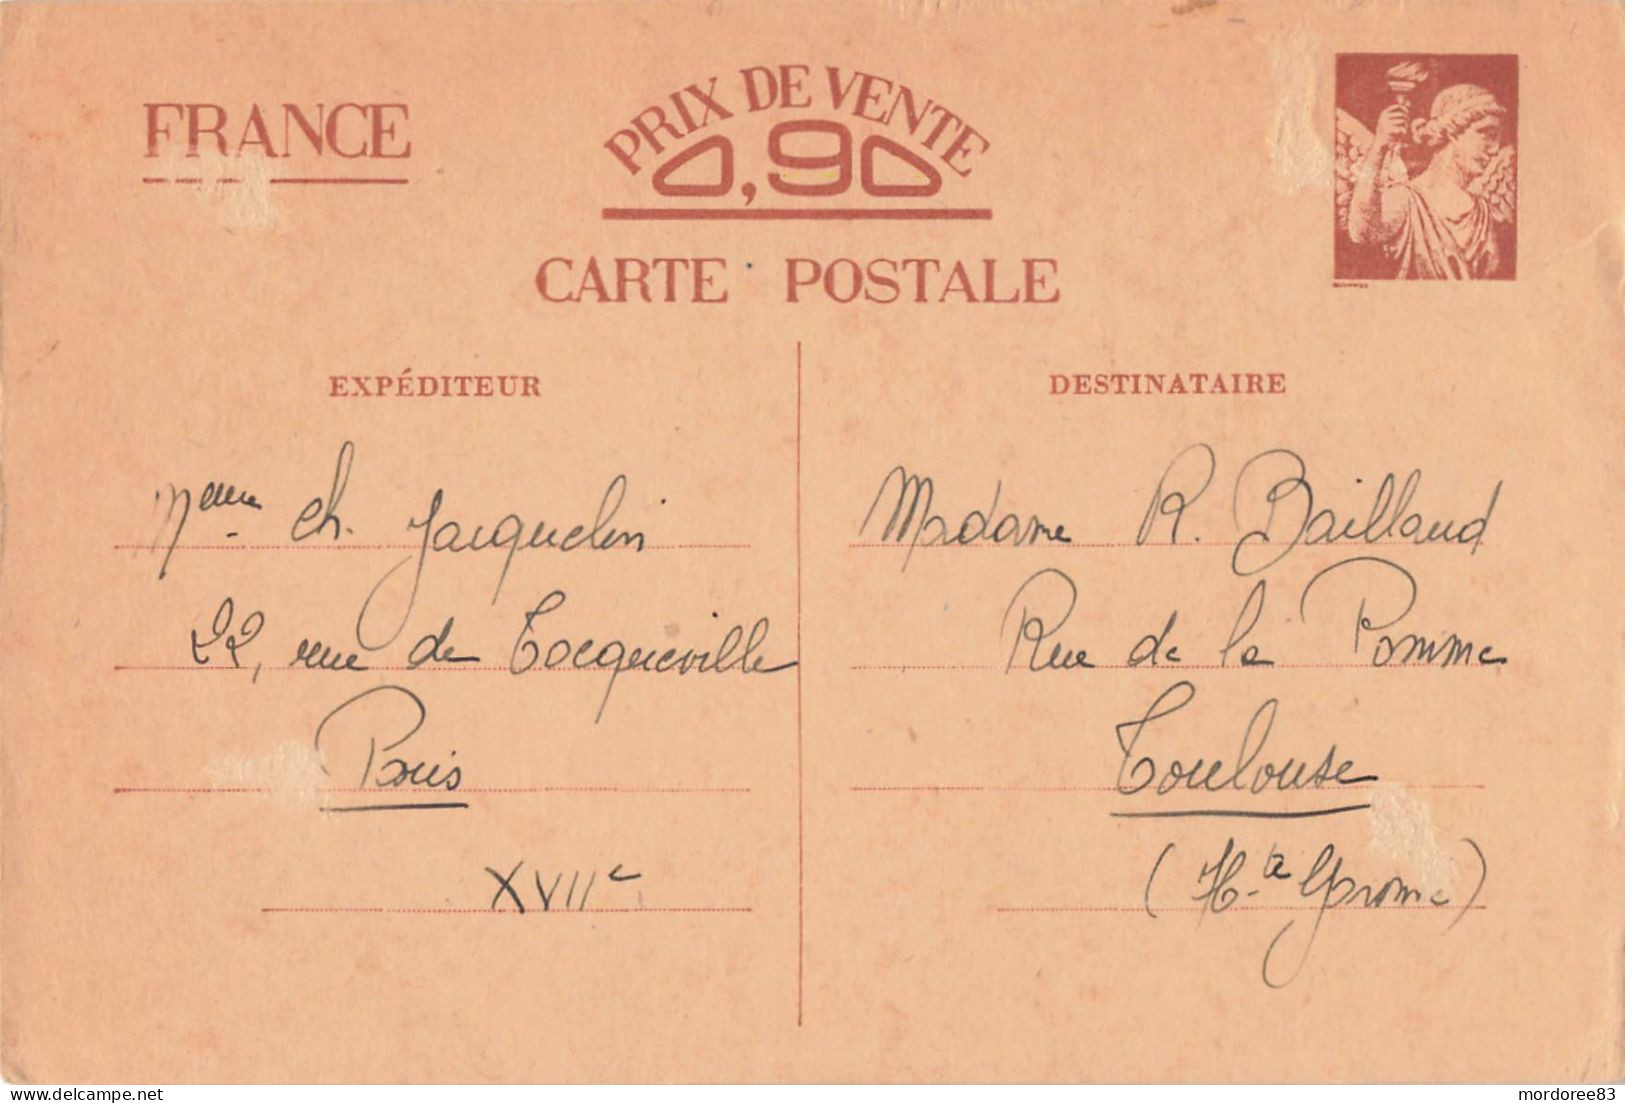 FRANCE
PRIX DE VENTE
0,90
CARTE POSTALE
EXPÉDITEUR
Mme Ch. Jacquelin
22, rue de Tocqueville
Paris
XVIIe
DESTINATAIRE
Madame R. Baillaud
Rue de la Pomme
Toulouse
(Hte Garonne)
delcampe.net
mordoree83